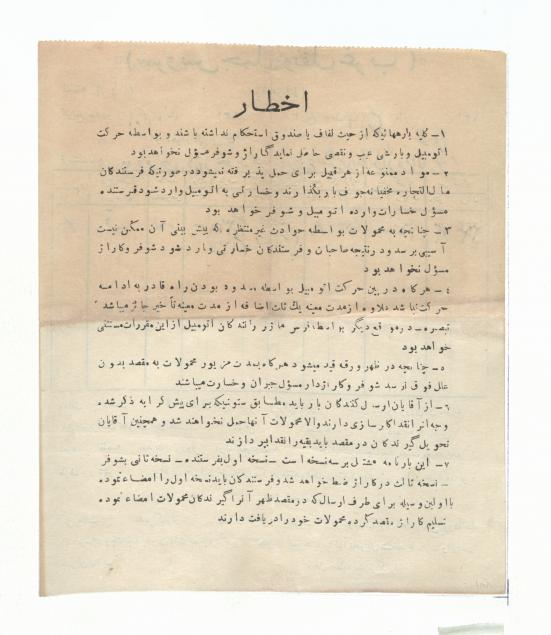 اخطار
۱ــ کلیه بارهائیکه از حیث لفاف یا صندوق استحکام نداشته باشند و بواسطه حرکت
اتومبیل و بارشی عیب و نقصی حاصل نماید گاراژ و شوفر مسؤل نخواهد بود
۲ــ مواد ممنوعه از هر قبیل برای حمل پذیرفته نمیشود درصورتیکه فرستندگان
مال التجاره مخفیانه جوف بار بگذارند و خسارتی به اتومبیل وارد شود فرستنده
مسؤل خسارات وارده اتومبیل و شوفر خواهد بود
۳ــ چنانچه به محمولات بواسطه حوادث غیر منتظره که پیش بینی آن ممکن نیست
آسیبی برسد و درنتیجه صاحبان و فرستندگان خسارتی وارد شود شوفر و گاراژ
مسؤل نخواهد بود
٤ــ هرگاه در بین حرکت اتومبیل بواسطه مسدود بودن راه قادر به ادامه
حرکت نباشد علاوه از مدت معینه یك ثلث اضافه از مدت معینه تأخیر جائز میباشد
تبصره ــ در مواقع دیگر بواسطه رانندگان اتومبیل از این مقررات مستثنی
خواهد بود
۵ــ چنانچه در ظهر ورقه قید میشود هرگاه بمدت مزبور محمولات به مقصد بدون
علل فوق نرسد شوفر و گاراژدار مسؤل جبران و خسارت میباشند
٦ــ از آقایان ارسال کنندگان بار باید مطابق ستونیکه برای پیش کرایه ذکر شده
وجه را نقداً کارسازی دارند والا محمولات آنها حمل نخواهند شد و همچنین آقایان
تحویل گیرندگان در مقصد باید بقیه را نقداً بپردازند
۷ــ این بارنامه مشتمل بر سه نسخه است ــ نسخه اول بفرستنده ــ نسخه ثانی بشوفر
ــ نسخه ثالث در گاراژ ضبط خواهد شد و فرستندگان باید نسخه اول را امضاء نموده
با اولین وسیله برای طرف ارسال که در مقصد ظهر آنرا گیرندگان محمولات امضاء نموده
تسلیم گاراژ مقصد کرده محمولات خود را دریافت دارند